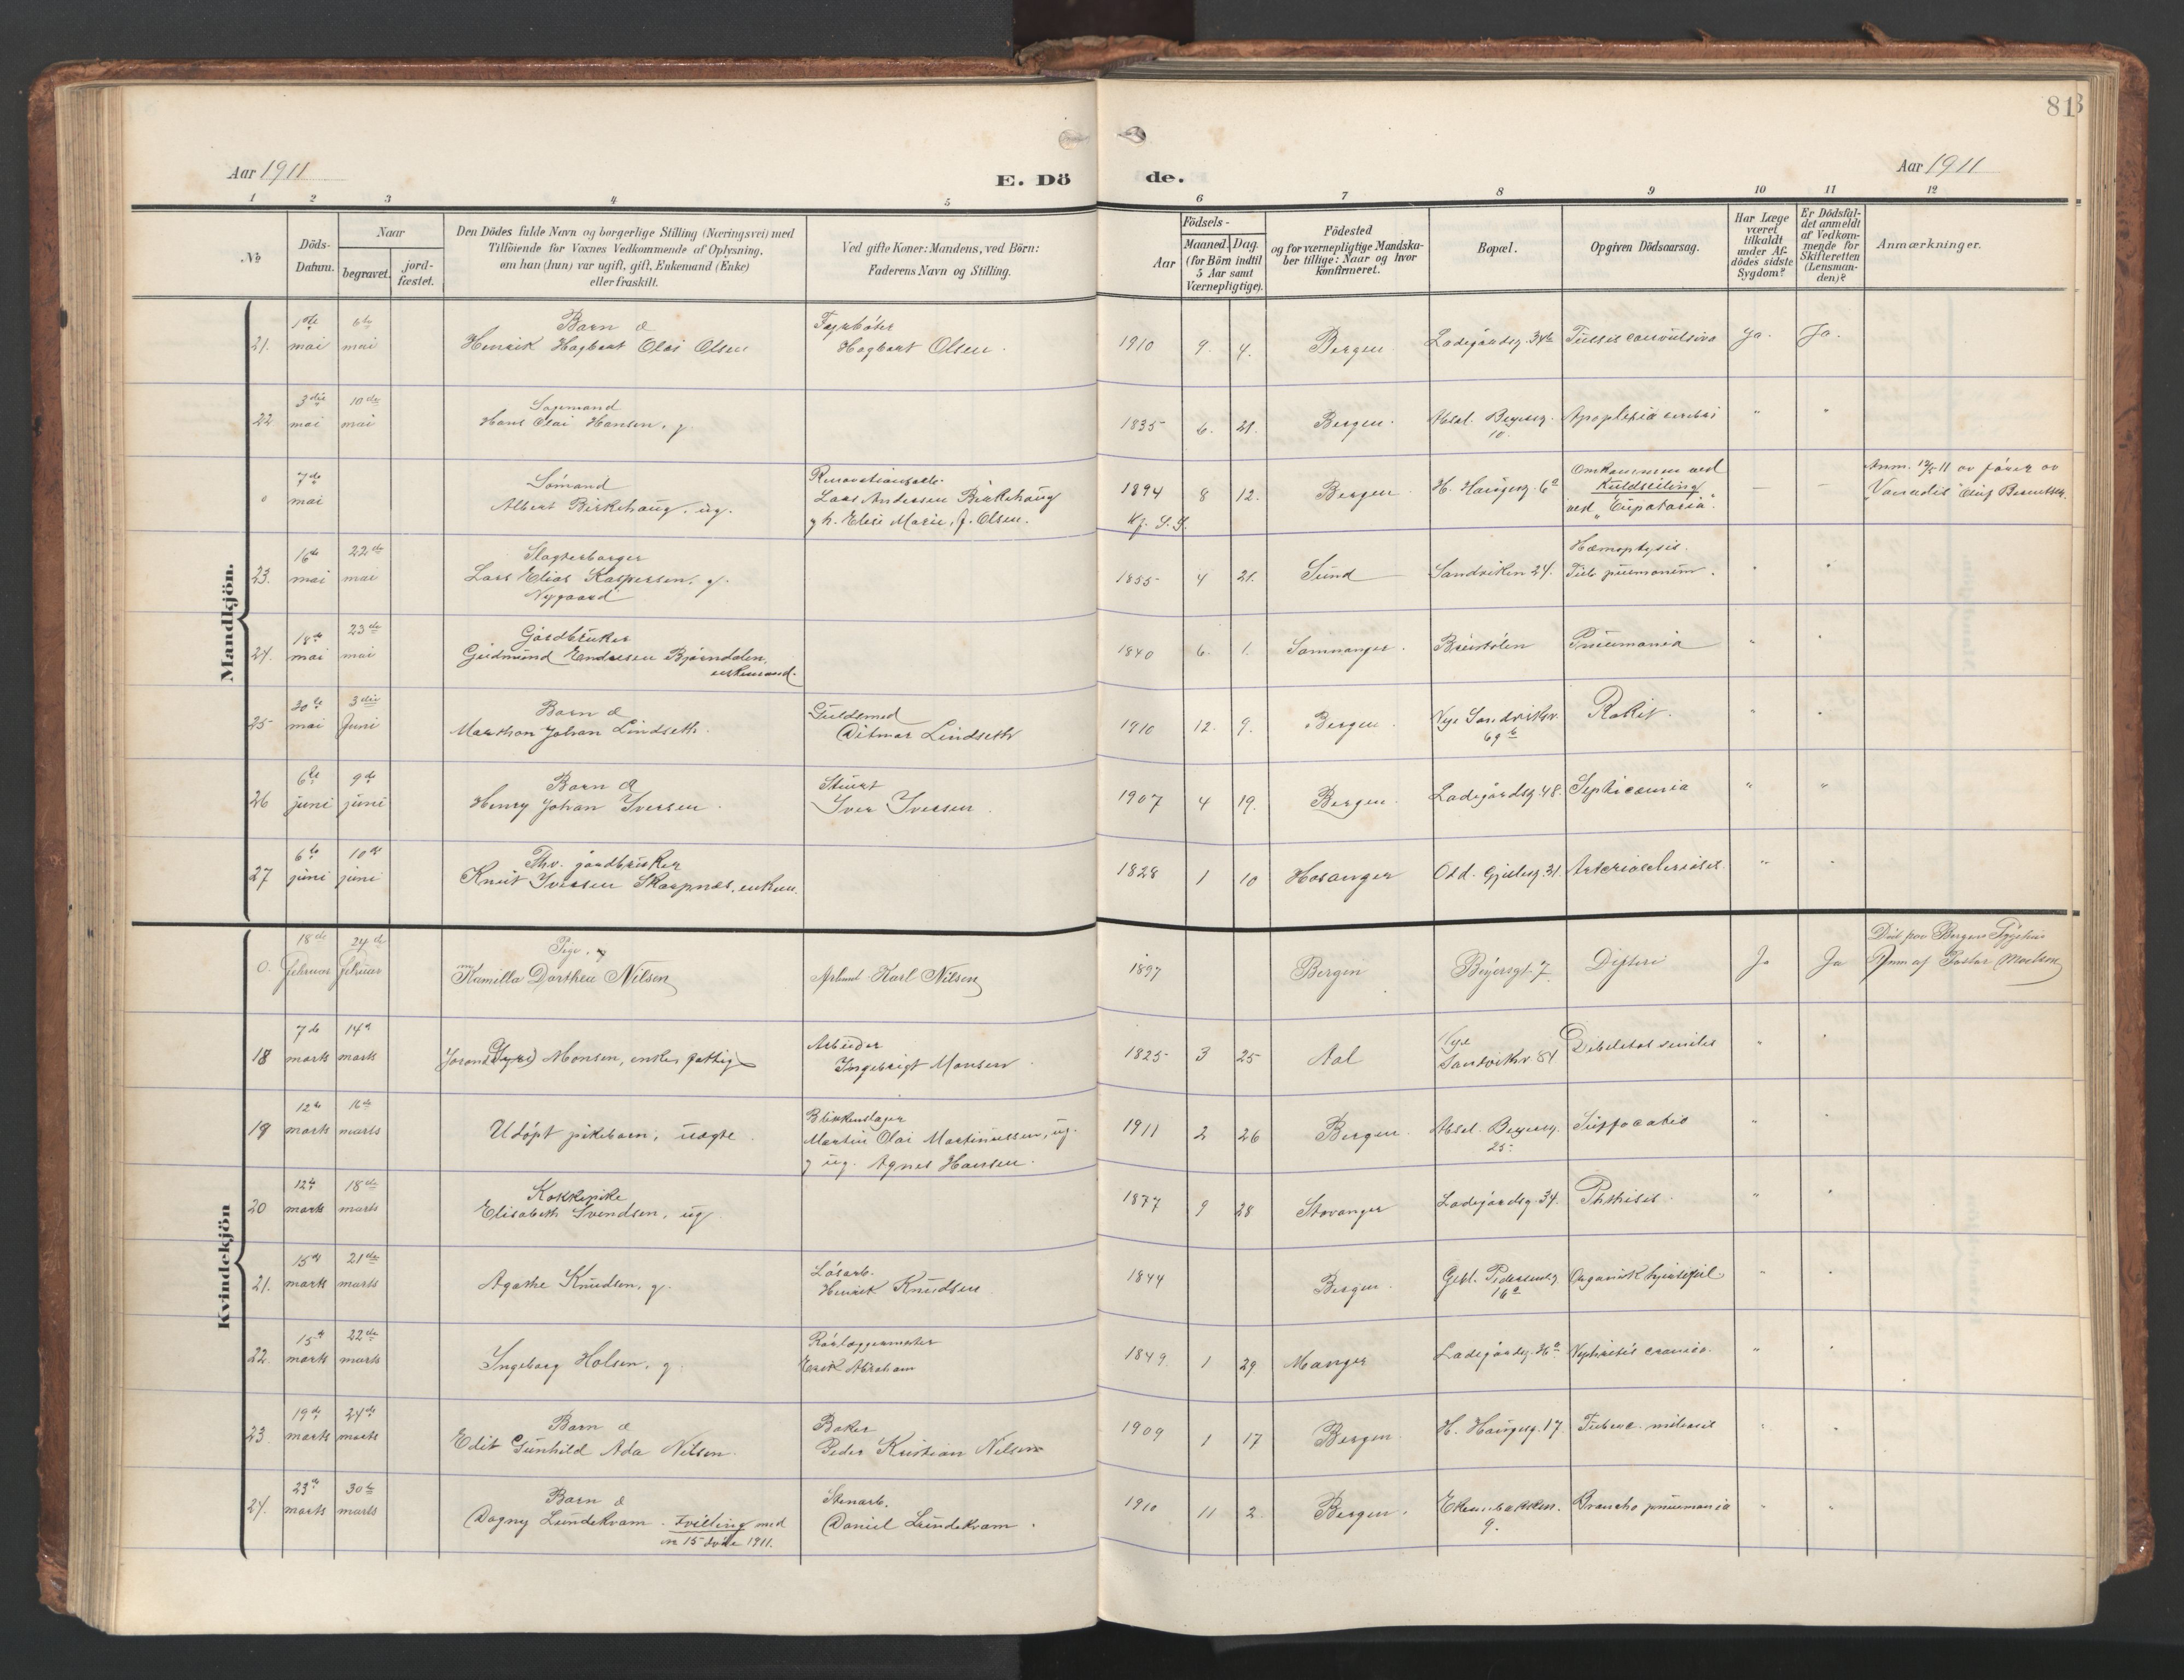 81
Aar 1911
E. Dö
de.
Aar 1911
1 2 3 4 5 6 7 8 9 10 11 12
No
Döds-
Datum.
Naar
begravet.
jord-
fæstet.
Den Dödes fulde Navn og borgerlige Stilling (Næringsvei) med
Tilföiende for Voxnes Vedkommende af Oplysning,
om han (hun) var ugift, gift, Enkemand (Enke)
eller fraskilt.
Ved gifte Koner: Mandens, ved Börn:
Faderens Navn og Stilling.
Födsels-
Aar
Maaned. Dag.
(for Börn indtil
5 Aar samt
Værnepligtige).
Födested
og for værnepligtige Mandska-
ber tillige: Naar og hvor
konfirmeret.
Bopæl.
Opgiven Dödsaarsag.
Har Læge
været
tilkaldt
under Af-
dödes sidste
Sygdom?
Er Dödsfal-
det anmeldt
af Vedkom-
mende for
Skifteretten
(Lensman-
den)?
Anmærkninger.
Mandkjön.
21. 1ste mai 6te mai
Barn
Henrik Hagbart Olai Olsen
Fyrbøter
Hagbart Olsen.
1910 9. 4. Bergen Ladegårdsg. 34b Tussis convulsiva Ja. Ja.
22 3die mai 10de mai
Hans Olai Hansen, g.
1835 6. 21. Bergen. Absal. Beyersg. 10. Apoplexia cerebri " "
0 7de mai
Sømand
Albert Birkehaug, ug.
Renovationsarb.
Lars Andersen Birkehaug
g h. Elise Marie, f. Olsen.
1894 8 12. Bergen H. Haugesg. 6a
Omkommen ved
Kuldseiling
ved "Eupatoria".
— —
Anm. 12/5 11 av fører av
"Vanadis"
23. 16de mai 22de mai
Slagterborger
Lars Elias Kaspersen, g.
Nygaard
1855 4 21. Sund Sandviken 24.
Hæmoptysis.
Tub. pulmonum. " "
24. 18de mai 23de mai
Gårdbruker
Gudmund Endresen Bjørndalen,
enkemand.
1840 6. 1. Samnanger. Breistølen Pneumonia " "
25 20de mai 3die juni
Barn
Marthon Johan Lindseth.
Guldsmed
Ditmar Lindseth
1910 12. 9. Bergen. Nye Sandviksv. 69b Rakit. " "
26 6te juni 9de juni
Barn
Henry Johan Iversen.
Stuert
Iver Iversen.
1907 4 19. Bergen. Ladegårdsg. 48. Septicæmia " "
27 6te juni 10de juni
Fhv. gårdbruker
Knut Iversen Skarpnes, enkem.
1828 1 10 Hosanger Odd. Gjelesg. 31. Arteriosclerosis. " "
Kvindekjön
0. 18de Februar 24de Februar
Pige
Kamilla Dorthea Nilsen
Karl Nilsen
1897 Bergen Beyersgt. 7 Difteri Ja Ja
Død paa Bergens Sygehus
Anm af Pastor
18 7de marts 14de marts
Monsen, enke, fattig
Arbeider
Ingebrigt Monsen.
1825 3 25 Aal
Nye
Sandviksv. 81 Debilitas senilis " "
19 12te marts 16de marts
Udøpt pikebarn, uægte.
Blikkenslager
Martin Olai Martinussen, ug.
g ug. Agnes Hansen.
1911 2 26 Bergen. Absal. Beyersg. 25. Suffocatio " "
20 12te marts 18de marts
Kokkepike
Elisabeth Svendsen, ug.
1877 9 28 Stavanger Ladegårdsg. 34. Phthisis. " "
21. 15de marts 21de marts
Agathe Knudsen, g.
Løsarb.
Henrik Knudsen
1844 Bergen. Gebl. Pedersensg 16a Organisk hjertefeil " "
22. 15de marts 22de marts
Ingeborg Holsen, g.
Rørlæggermester
Erik Abraham
1849. 1 29 Manger Ladegårdsg. Nephritis cronica. " "
23. 19de marts 24de marts
Barn
Edit Gunhild Ada Nilsen.
Baker
Peder Kristian Nilsen
1909 1 17 Bergen. H. Haugesg. 17. Tuberc. miliaris " "
24. 23de marts 30te marts
Barn
Dagny Lundekvam. Tvilling med
no 15 døde 1911.
Stenarb.
Daniel Lundekvam.
1910 11 2. Bergen. 9. Broncho pneumonia " "